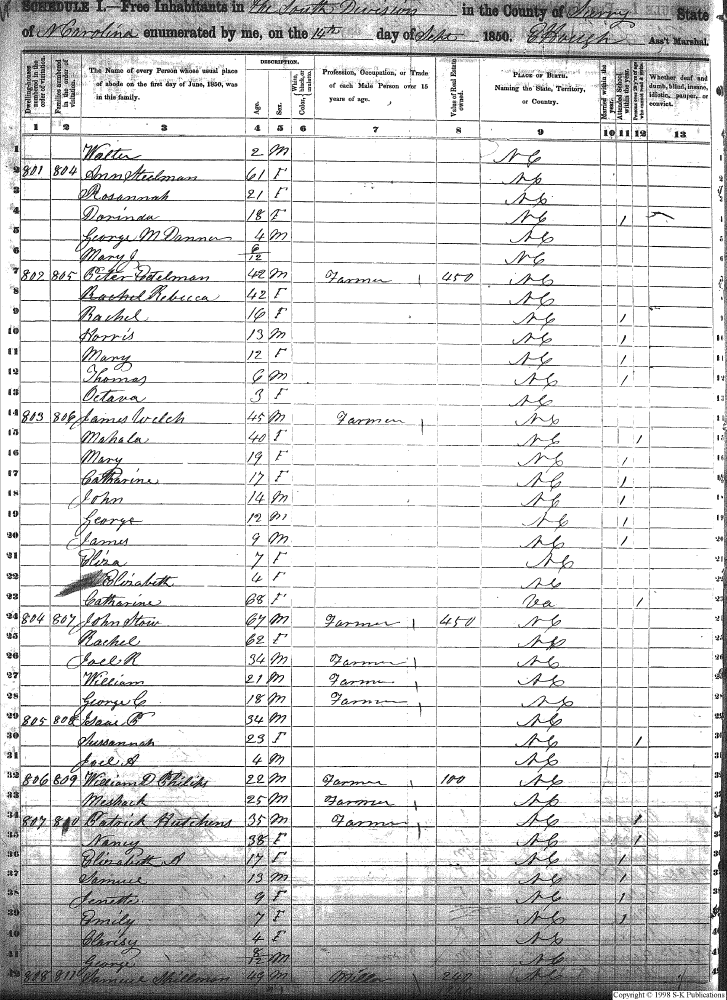 SCHEDULE I.—Free Inhabitants in The South Division in the County of Surry State
of N Carolina enumerated by me, on the 14th day of Sept 1850. Ass't Marshal.
Dwelling-houses numbered in the order of visitation.
Families numbered in the order of visitation.
The Name of every Person whose usual place of abode on the first day of June, 1850, was in this family.
DESCRIPTION.
Age.
Sex.
White, black, or mulatto.
Color,
Profession, Occupation, or Trade of each Male Person over 15 years of age.
Value of Real Estate owned.
PLACE OF BIRTH. Naming the State, Territory, or Country.
Married within the year.
Attended School within the year.
Whether deaf and dumb, blind, insane, idiotic, pauper, or convict.
1 2 3 4 5 6 7 8 9 10 11 12 13
1 Walter 2 M NC
2 801 804 Ann Steelman 61 F NC
3 Rosannah 21 F NC
4 Dorinda 18 F NC 1
5 George M Danner 4 M NC
6 Mary J 6/12 NC
7 802 805 Peter 42 M Farmer 1 450 NC
8 Rachel Rebecca 42 F NC
9 Rachel 16 F NC 1
10 Horris 13 M NC 1
11 Mary 12 F NC 1
12 Thomas 6 M NC 1
13 Octava 3 F NC
14 803 806 James Welch 45 M Farmer 1 NC
15 Mahala 40 F NC 1
16 Mary 19 F NC 1
17 Catharine 17 F NC 1
18 John 14 M NC 1
19 George 12 M NC 1
20 James 9 M NC 1
21 Eliza 7 F NC
22 Elizabeth 4 F NC
23 Catharine 68 F Va 1
24 804 807 John 67 M Farmer 1 450 NC
25 Rachel 62 F NC
26 Joel R 34 M Farmer 1 NC
27 William 21 M Farmer NC
28 George C 18 M Farmer NC
29 805 808 Isaac 34 M NC
30 Sussannah 23 F NC 1
31 Joel A 4 M NC
32 806 809 William D Philips 22 M Farmer 100 NC
33 Meshack 25 M Farmer NC
34 807 810 Patrick Hutchens 35 M Farmer NC 1
35 Nancy 38 F NC 1
36 Elizabeth A 17 F NC 1
37 Samuel 13 M NC 1
38 9 F NC 1
39 Emily 7 F NC 1
40 Clarisy 4 F NC
41 George 8/12 M NC
42 808 811 Samuel 49 M Miller 240 NC
Copyright © 1998 S-K Publications